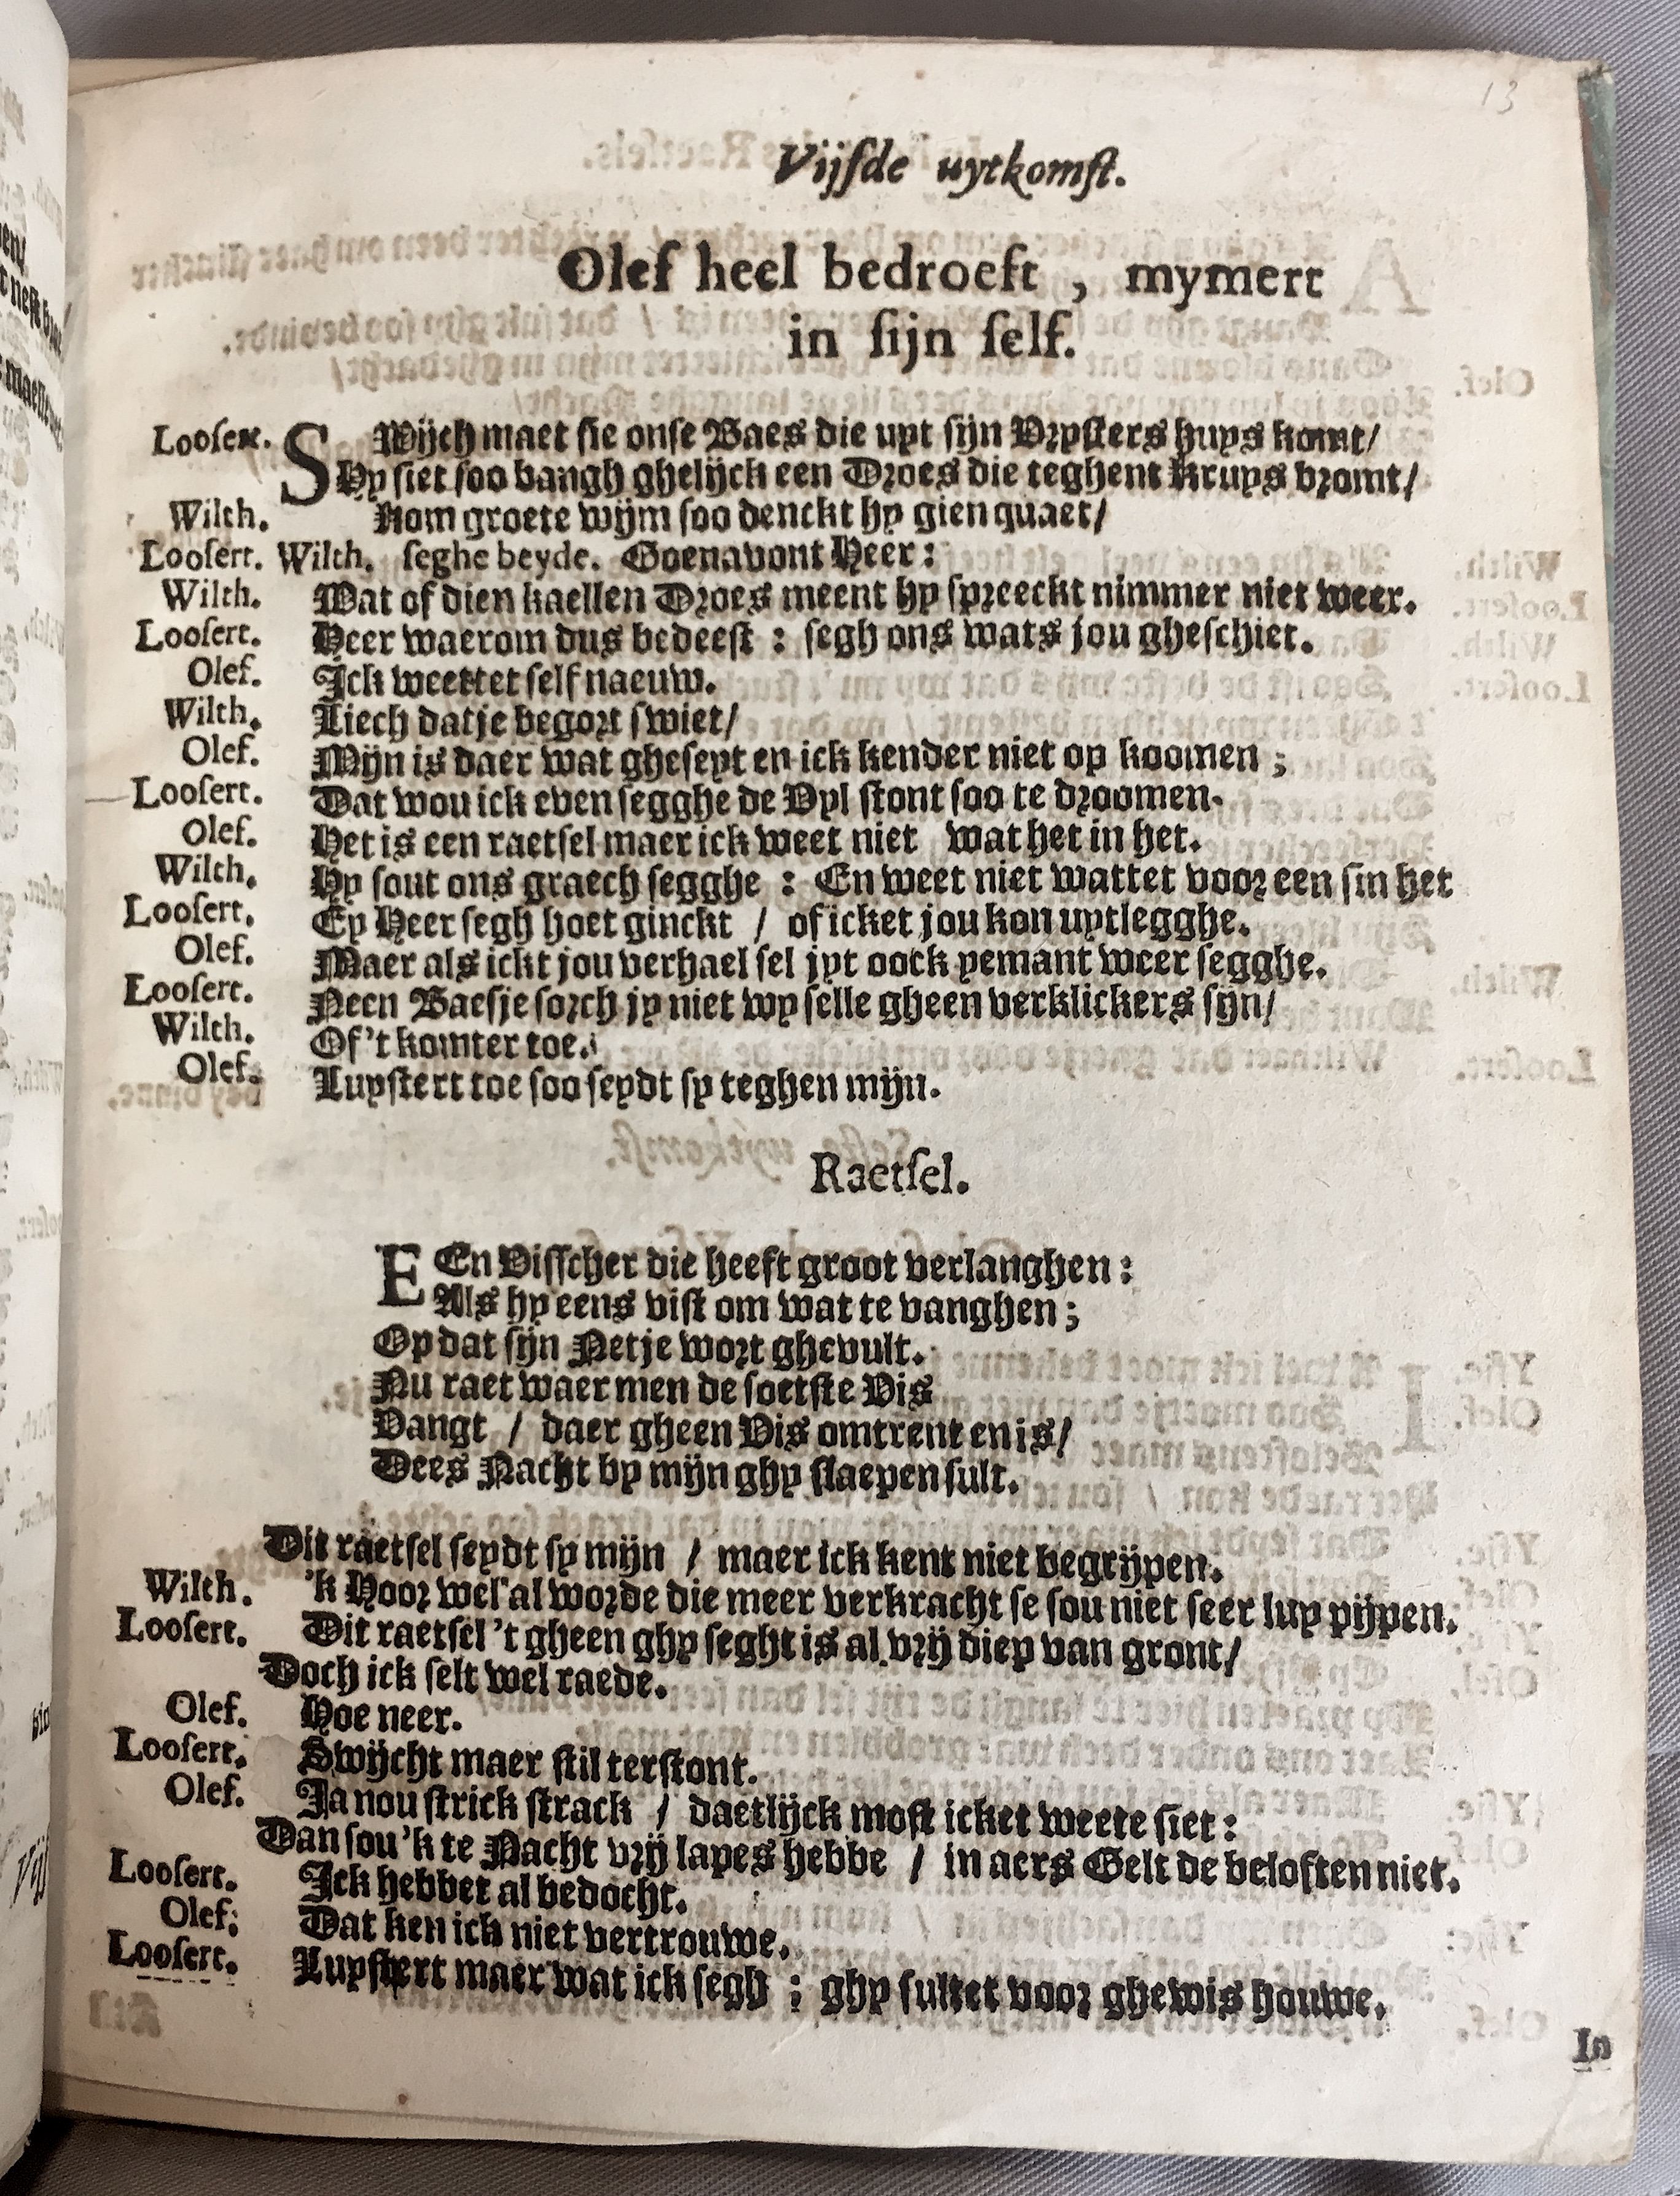 13
Vijfde uytkomst.
Olef heel bedroeft , mymert
in sijn self.
Loosert. SWijch maet sie onse Baes die uyt sijn Vrysters huys komt/
Hy siet soo bangh ghelijck een Droes die teghent kruys bromt/
Wilth. Kom groete wijm soo denckt hy gien quaet/
Loosert. Wilth. seghe beyde. Goenavont Heer:
Wilth. Wat of dien kaellen Droes meent hy spreeckt nimmer niet weer.
Loosert. Heer waerom dus bedeest : segh ons wats jou gheschiet.
Olef. Ick weettet self naeuw.
Wilth. Liech datje begort swiet/
Olef. Mijn is daer wat gheseyt en ick kender niet op koomen ;
Loosert. Dat wou ick even segghe de Uyl stont soo te droomen.
Olef. Het is een raetsel maer ick weet niet wat het in het.
Wilth. Hy sout ons graech segghe : En weet niet wattet voor een sin het
Loosert. Ey Heer segh hoet ginckt / of icket jou kon uytlegghe.
Olef. Maer als ickt jou verhael sel jyt oock yemant weer segghe.
Loosert. Neen Baesje sorch jy niet wy selle gheen verklickers sijn/
Wilth. Of 't komter toe.
Olef. Luystert toe soo seydt sy teghen mijn.
Raetsel.
EEn Visscher die heeft groot verlanghen:
Als hy eens vist om wat te vanghen;
Op dat sijn Netje wort ghevult.
Nu raet waer men de soetste Vis
Vangt / daer gheen Vis omtrent en is/
Dees Nacht by mijn ghy slaepen sult.
Dit raetsel seydt sy mijn / maer ick kent niet begrijpen.
Wilth. 'k Hoor wel al worde die meer verkracht se sou niet seer luy pijpen.
Loosert. Dit raetsel 't gheen ghy seght is al vrij diep van gront/
Doch ick selt wel raede.
Olef. Hoe neer.
Loosert. Swijcht maer stil terstont.
Olef. Ja nou strick strack / daetlijck most icket weete siet:
Dan sou 'k te Nacht vrij lapes hebbe / in aers Gelt de beloften niet.
Loosert. Ick hebbet al bedocht.
Olef. Dat ken ick niet vertrouwe.
Loosert. Luystert maer wat ick segh ; ghy sultet voor ghewis houwe.
In